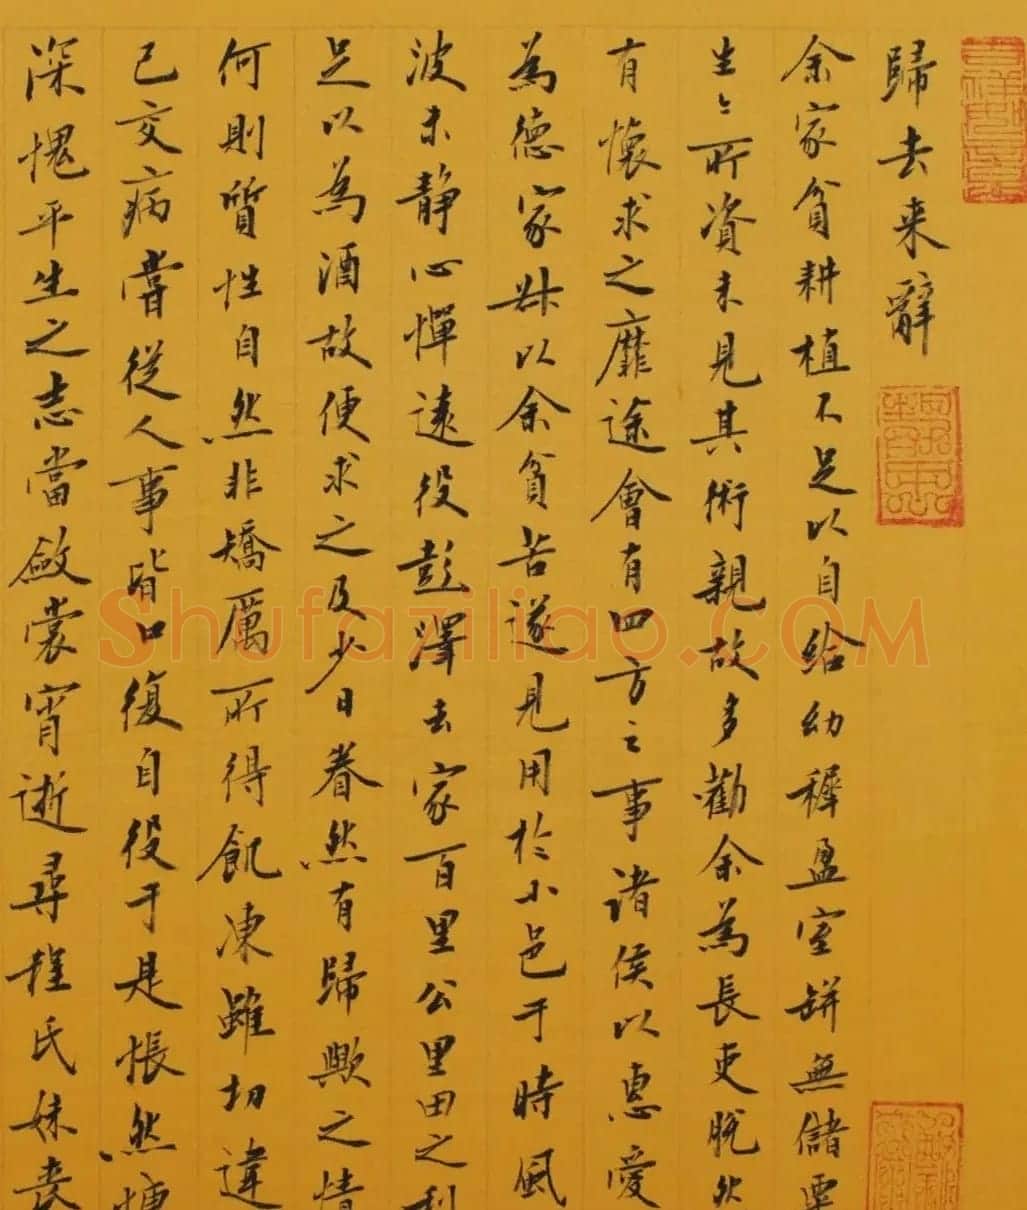 歸去来辭
余家貧耕植不足以自給幼穉盈室缾無儲粟
生〻所資未見其術親故多勸余為長吏脫然
有懷求之靡途會有四方之事諸侯以惠愛
為德家叔以余貧苦遂見用於小邑于時風
波未静心憚遠役彭澤去家百里公里田之利
足以為酒故便求之及少日眷然有歸歟之情
何則質性自然非矯厲所得飢凍雖切違
己交病嘗從人事皆口復自役于是悵然慷
深愧平生之志當斂裳宵逝尋程氏妹喪
Shufaziliao.COM